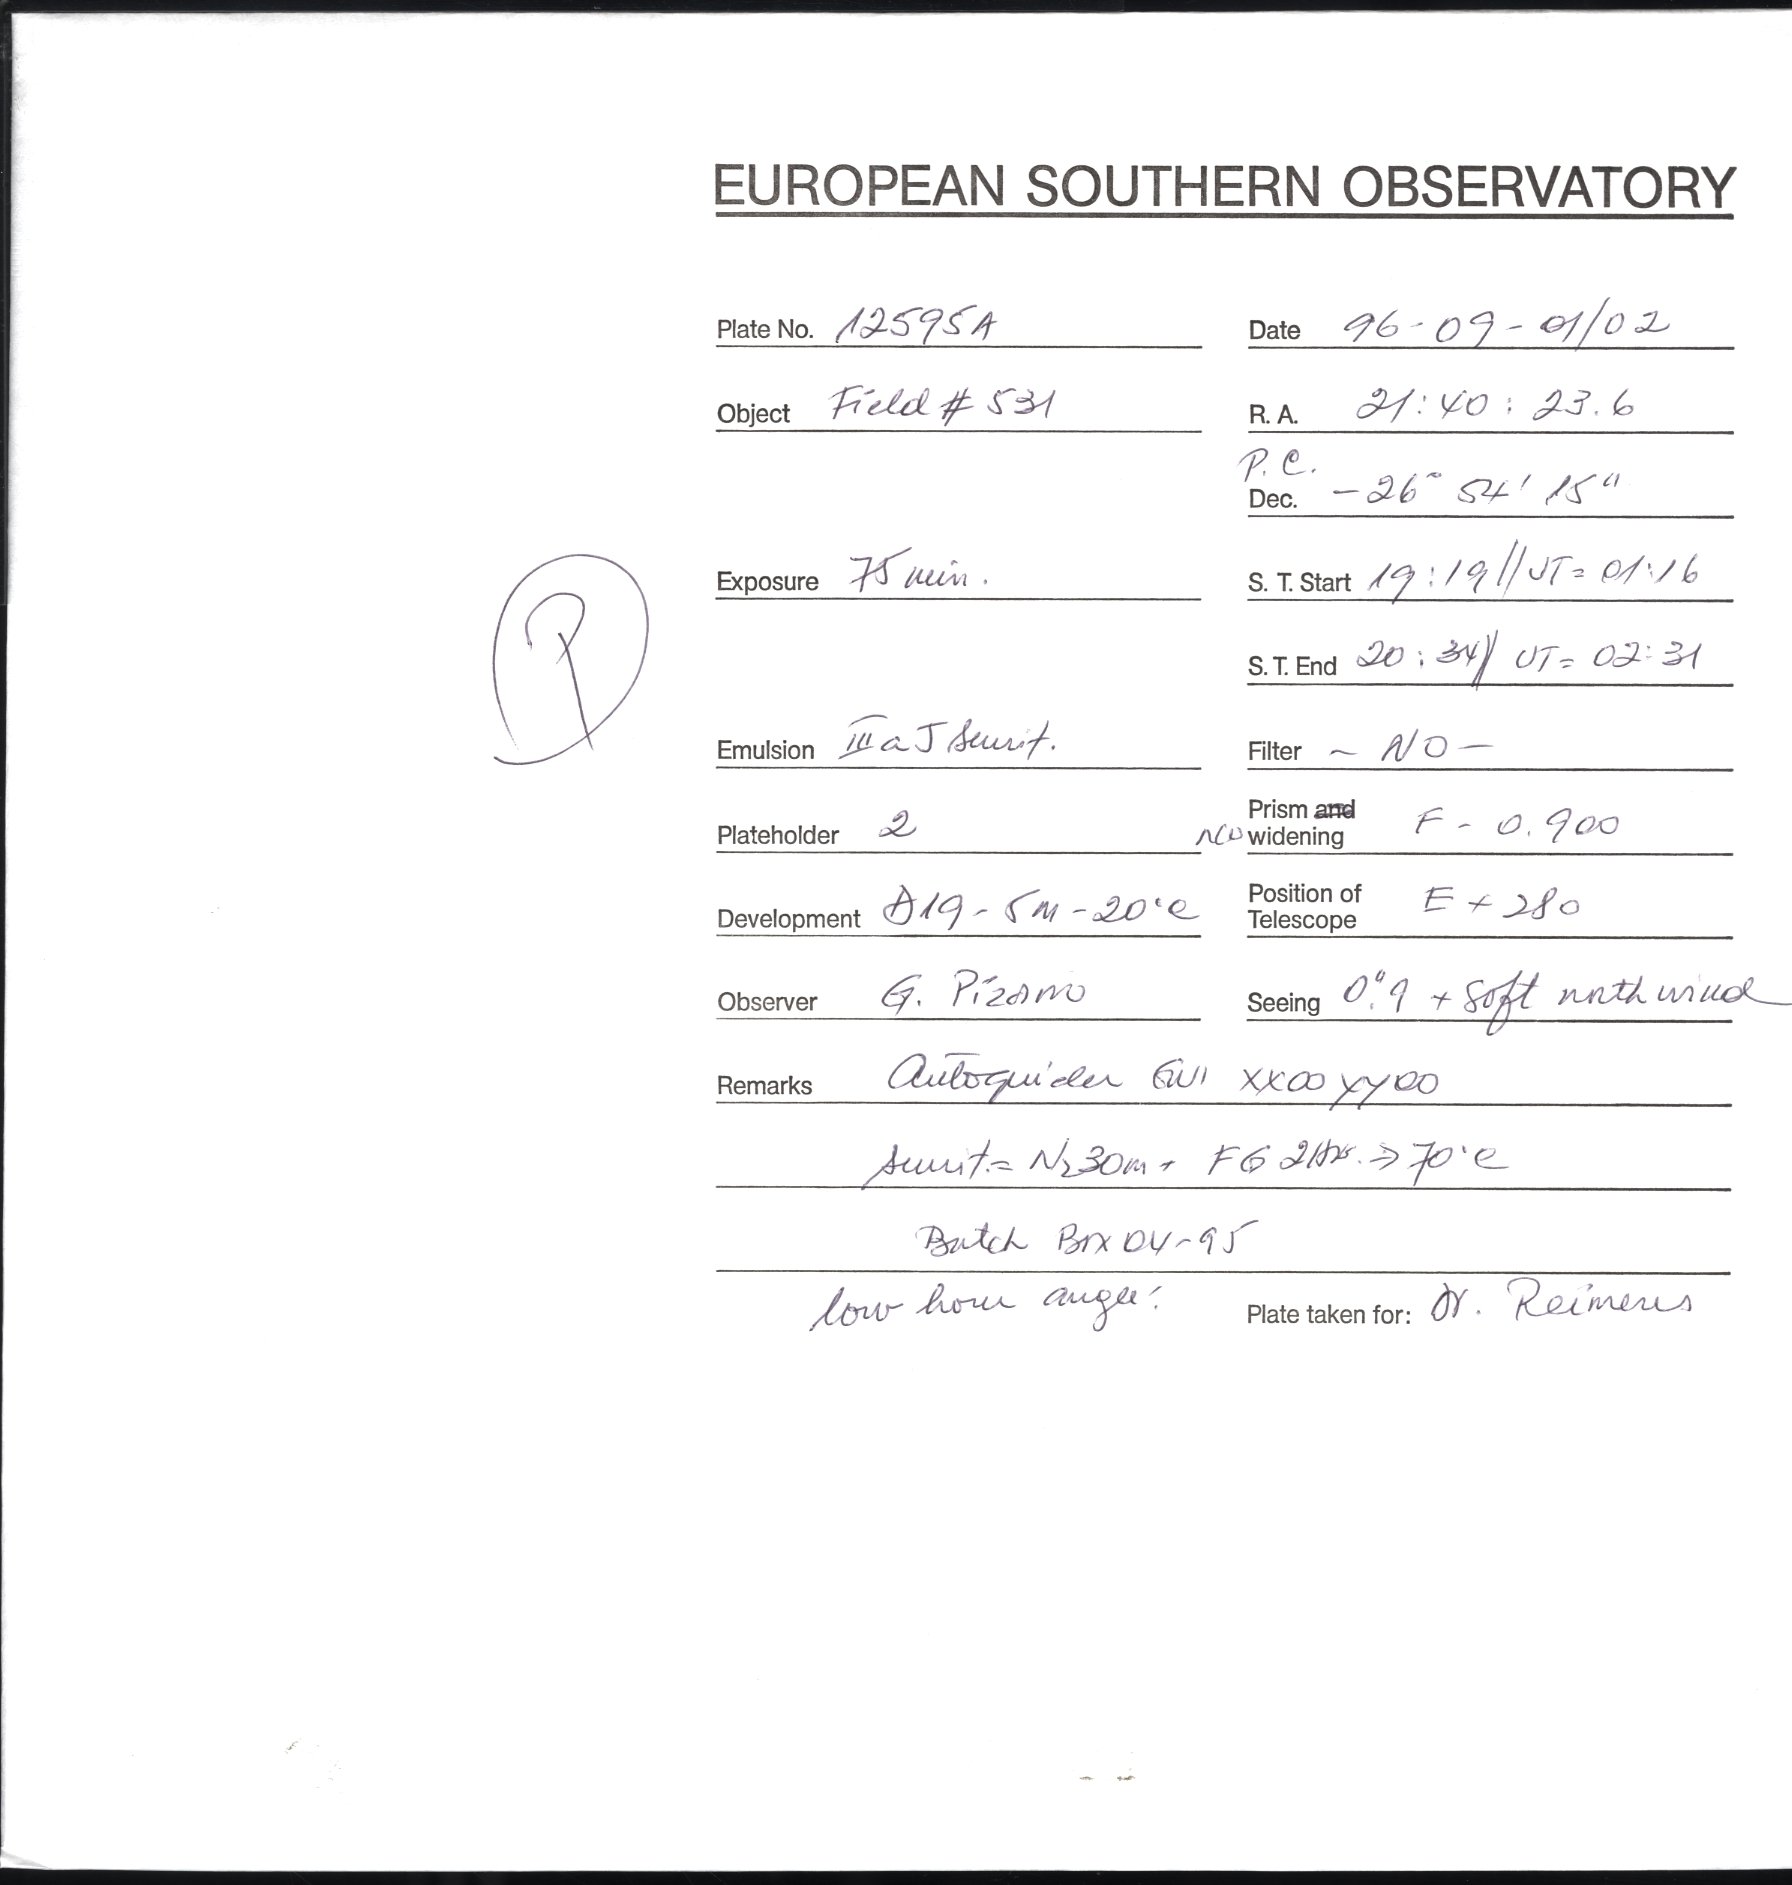 EUROPEAN SOUTHERN OBSERVATORY
Plate No. 12595A Date 96-09-01/02
Object Field # 531 R. A. 21:40:23.6
P.C.
Dec. -26° 54' 15"
Exposure 75 min. S. T. Start 19:19 // UT= 01:16
S. T. End 20:34 // UT= 02:31
Emulsion III a J Sensit. Filter - NO -
Plateholder 2 Prism and widening F - 0.900
Development D19 - 5m - 20°C Position of Telescope E + 280
Observer G. Pizarro Seeing 0".9 + soft north wind
Remarks Autoguider XX00 YY00
Sensit.= N2 30m + FG 2hrs. => 70°C
Batch Box 04-95
low hour angle! Plate taken for: Dr. Reimers